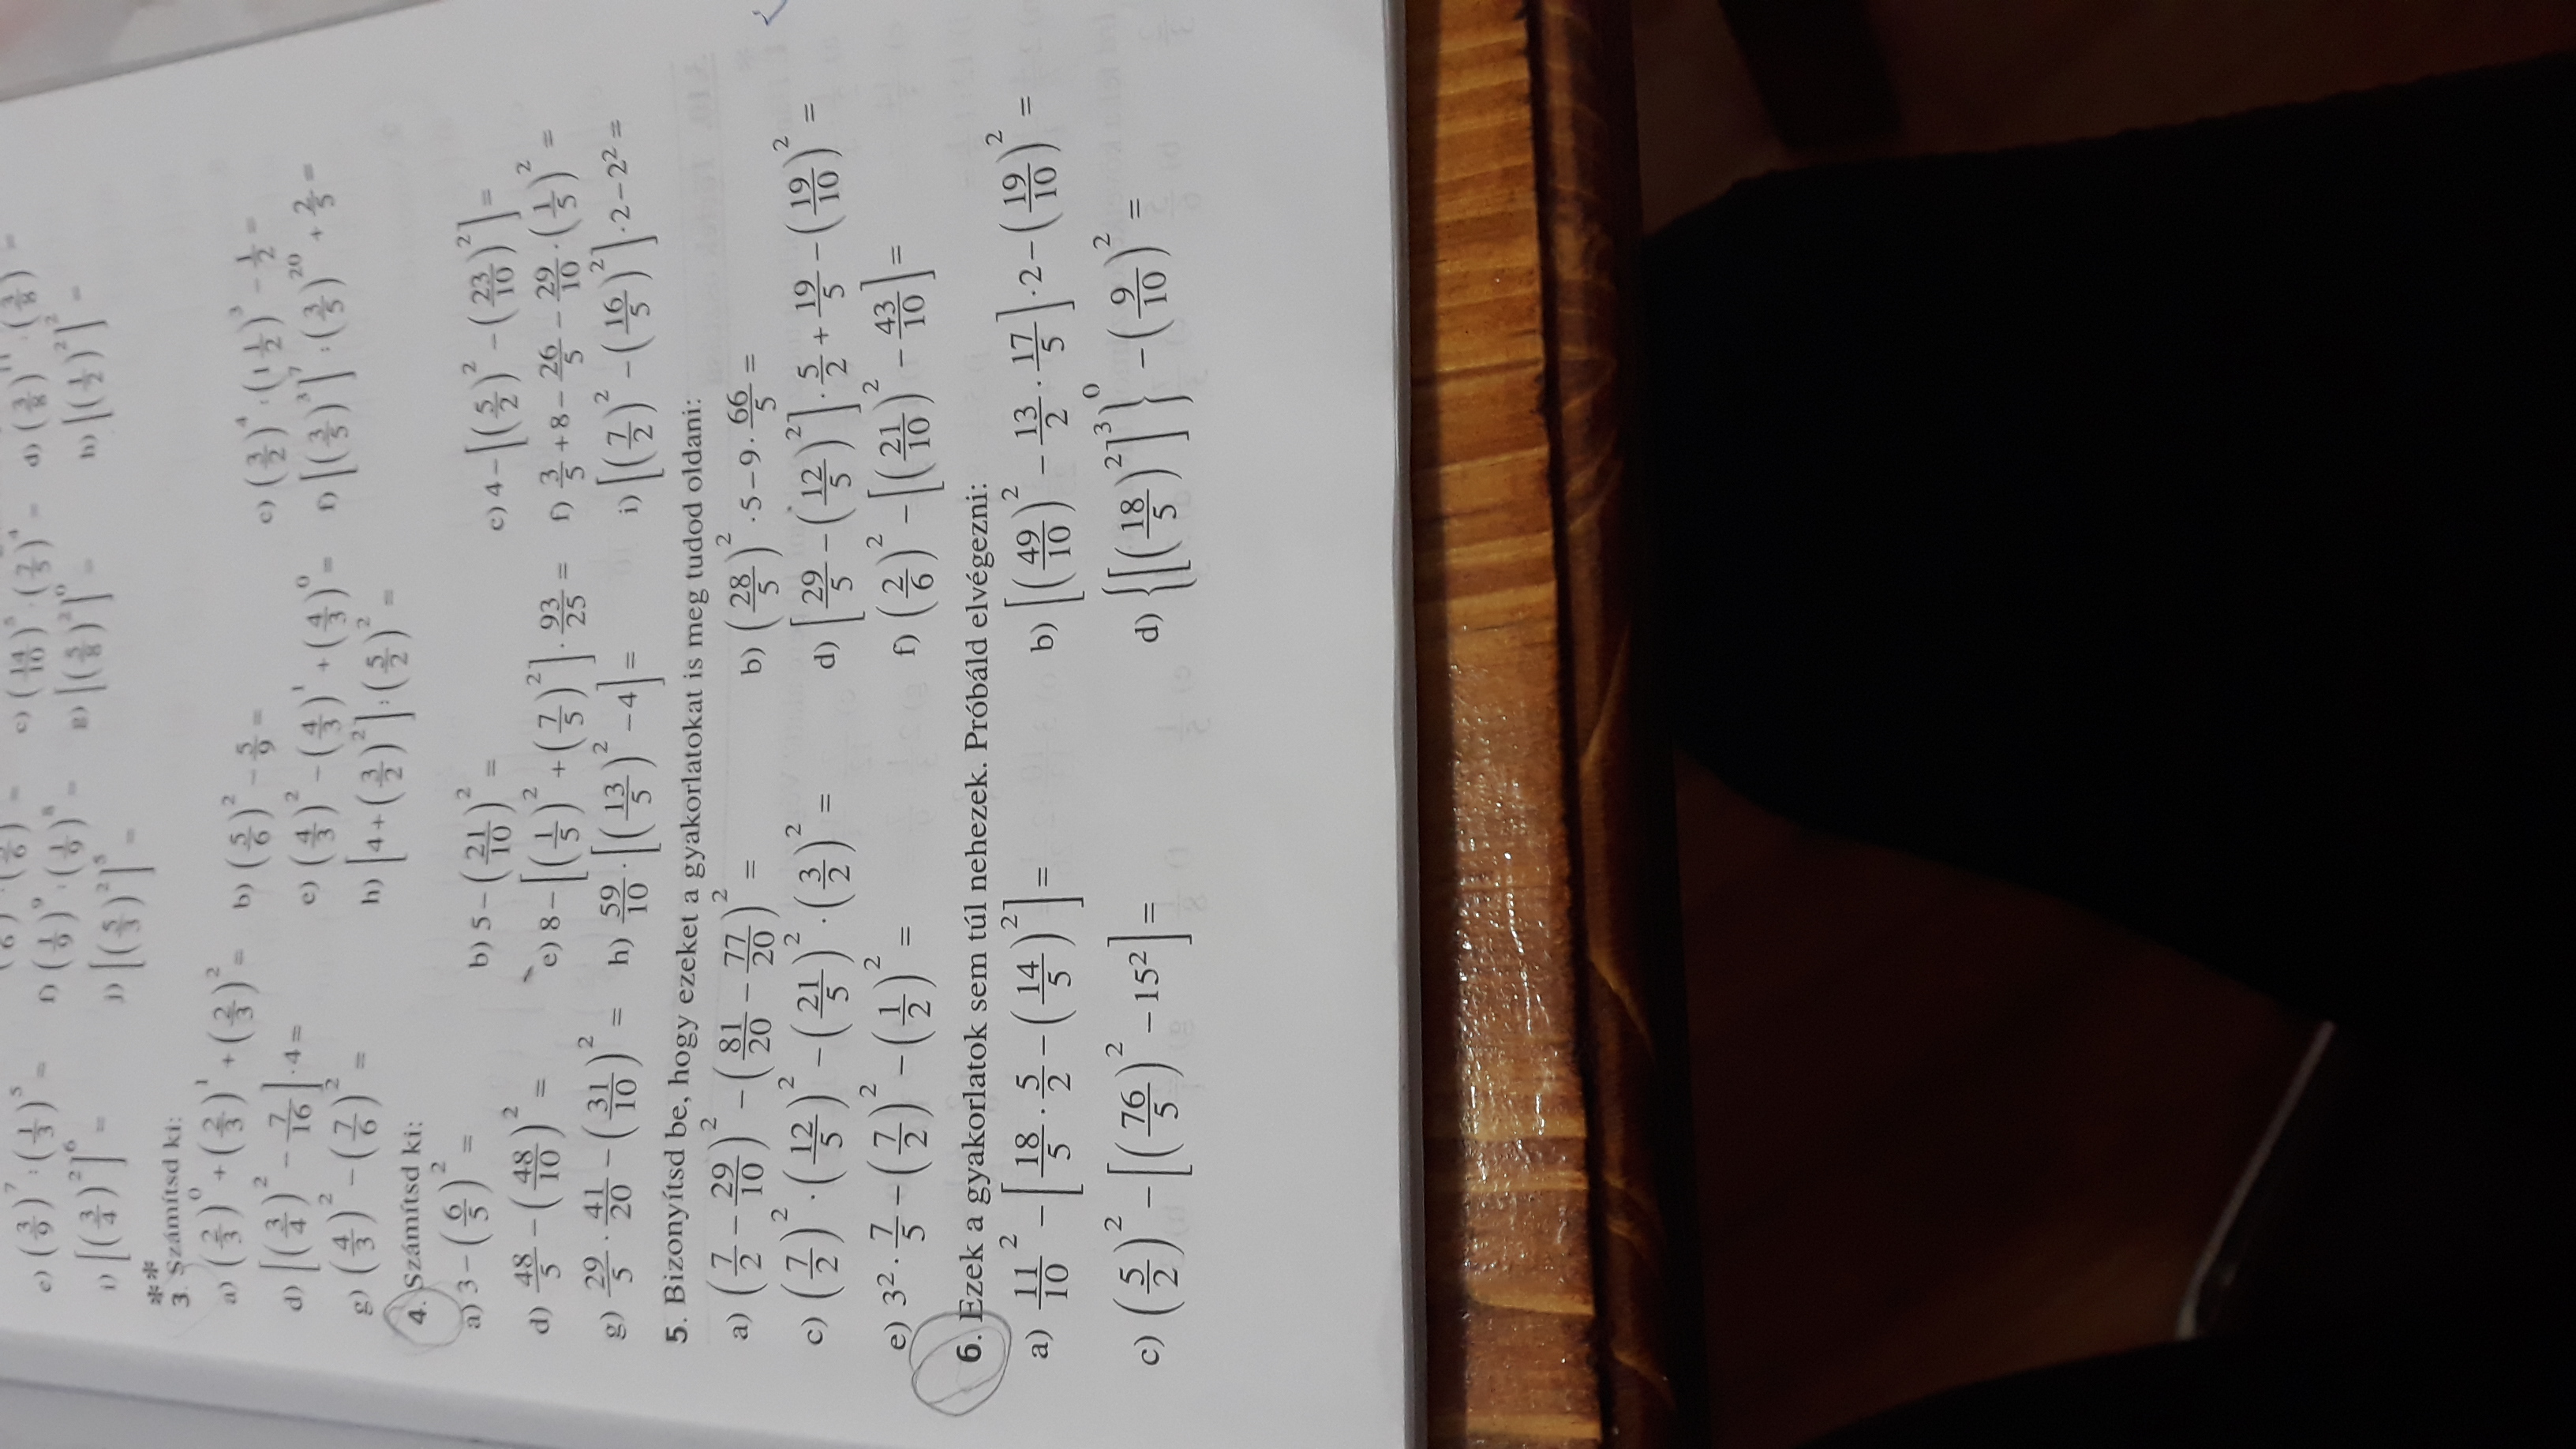 e) (3/9)⁷ : (1/3)⁵ =
f) (1/9)⁹ : (1/9)⁸ =
g) [(5/8)²]⁰ =
h) [(1/2)²]² =
i) [(3/4)²]⁶ =
j) [(5/3)²]⁵ =
**
3. Számítsd ki:
a) (2/3)⁰ + (2/3)¹ + (2/3)² =
b) (5/6)² − 5/9 =
c) (3/2)⁴ : (1 1/2)³ − 1/2 =
d) [(3/4)² − 7/16] · 4 =
e) (4/3)² − (4/3)¹ + (4/3)⁰ =
f) [(3/5)³]⁷ : (3/5)²⁰ + 2/5 =
g) (4/3)² − (7/6)² =
h) [4 + (3/2)²] : (5/2)² =
4. Számítsd ki:
a) 3 − (6/5)² =
b) 5 − (21/10)² =
c) 4 − [(5/2)² − (23/10)²] =
d) 48/5 − (48/10)² =
e) 8 − [(1/5)² + (7/5)²] · 93/25 =
f) 3/5 + 8 − 26/5 − 29/10 · (1/5)² =
g) 29/5 · 41/20 − (31/10)² =
h) 59/10 · [(13/5)² − 4] =
i) [(7/2)² − (16/5)²] · 2 − 2² =
5. Bizonyítsd be, hogy ezeket a gyakorlatokat is meg tudod oldani:
a) (7/2 − 29/10)² − (81/20 − 77/20)² =
b) (28/5)² · 5 − 9 · 66/5 =
c) (7/2)² · (12/5)² − (21/5)² · (3/2)² =
d) [29/5 − (12/5)²] · 5/2 + 19/5 − (19/10)² =
e) 3² · 7/5 − (7/2)² − (1/2)² =
f) (2/6)² − [(21/10)² − 43/10] =
6. Ezek a gyakorlatok sem túl nehezek. Próbáld elvégezni:
a) 11/10² − [18/5 · 5/2 − (14/5)²] =
b) [(49/10)² − 13/2 · 17/5] · 2 − (19/10)² =
c) (5/2)² − [(76/5)² − 15²] =
d) {[(18/5)²]³}⁰ − (9/10)² =